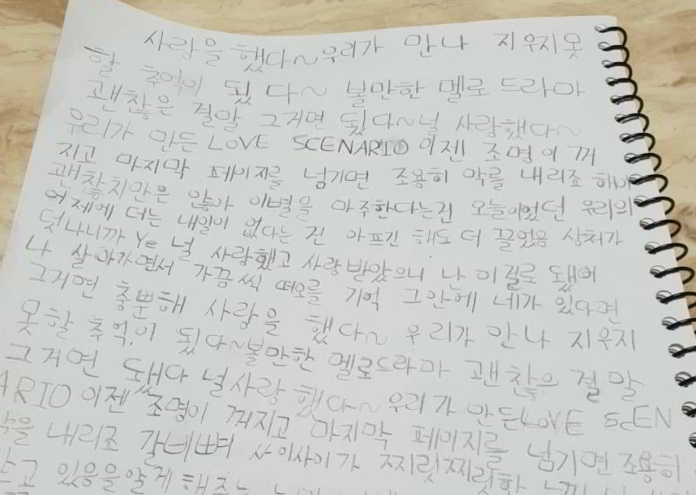 사랑을 했다~우리가 만나 지우지못
할 추억이 됬다~ 볼만한 멜로드라마
괜찮은 결말 그거면 됬다~널 사랑했다~
우리가 만든 LOVE SCENARIO 이젠 조명이 꺼
지고 마지막 페이지를 넘기면 조용히 막를 내리죠
괜찮치만은 않아 이별을 마주한다는건 오늘이었던 우리의
어제에 더는 내일이 없다는 건 아프긴 해도 더 끌었음 상처가
덧나니까 Ye 널 사랑했고 사랑받았으니 난 이걸로 됐어
나 살아가면서 가끔씩 떠오를 기억 그안에 네가 있다면
그거면 충분해 사랑을 했다~ 우리가 만나 지우지
못할 추억이 됬다~볼만한 멜로드라마 괜찮은 결말
그거면 됐다 널사랑했다~ 우리가 만든LOVE SCEN
ARIO 이젠 조명이 꺼지고 마지막 페이지를 넘기면 조용히
막을 내리죠 갈비뼈 사이사이가 찌릿찌릿한
있음을알게 해주는